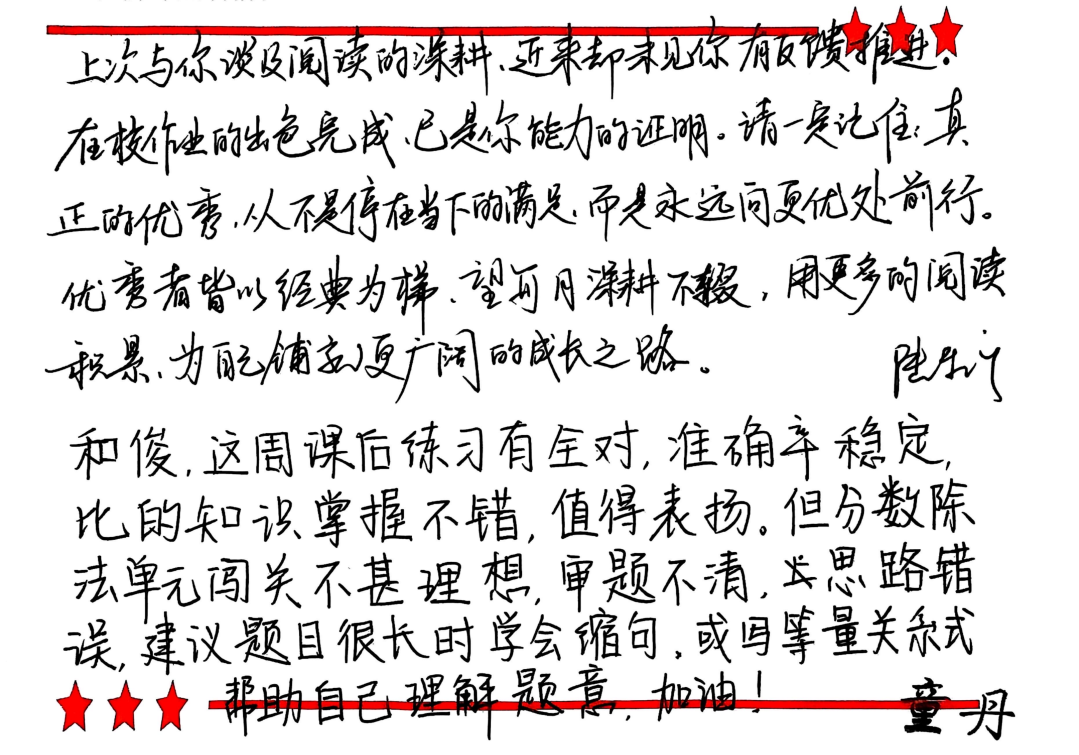 上次与你谈及阅读的深耕、近来却未见你有反馈推进。
在校作业的出色完成、已是你能力的证明。请一定记住：真
正的优秀，从不是停在当下的满足、而是永远向更优处前行。
优秀者皆以经典为梯、望每月深耕不辍，用更多的阅读
积累、为自己铺就更广阔的成长之路。
和俊，这周课后练习有全对，准确率稳定，
比的知识掌握不错，值得表扬。但分数除
法单元闯关不甚理想，审题不清，思路错
误，建议题目很长时学会缩句，或写等量关系式
帮助自己理解题意，加油！
童丹